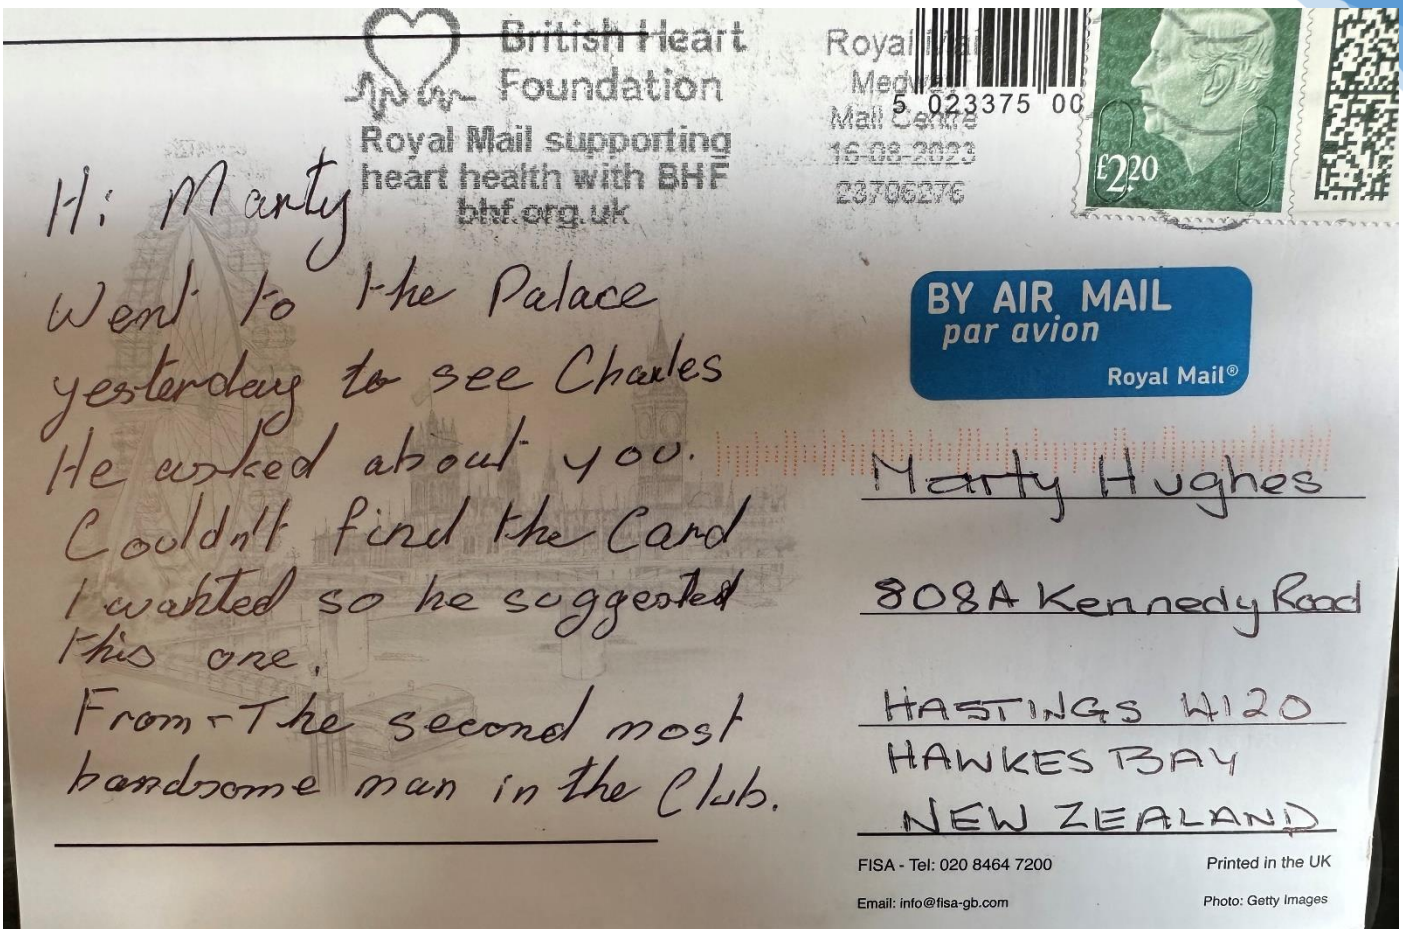 British Heart
Foundation
Royal Mail supporting
heart health with BHF
bhf.org.uk
Royal Mail
Medway
Mail Centre
16-08-2023
23706276
5 023375 00
£2.20
Hi Marty
Went to the Palace
yesterday to see Charles
He asked about you.
Couldn't find the Card
I wanted so he suggested
this one.
From - The second most
handsome man in the Club.
BY AIR MAIL
par avion
Royal Mail®
Marty Hughes
808A Kennedy Road
HASTINGS 4120
HAWKES BAY
NEW ZEALAND
FISA - Tel: 020 8464 7200
Printed in the UK
Email: info@fisa-gb.com
Photo: Getty Images